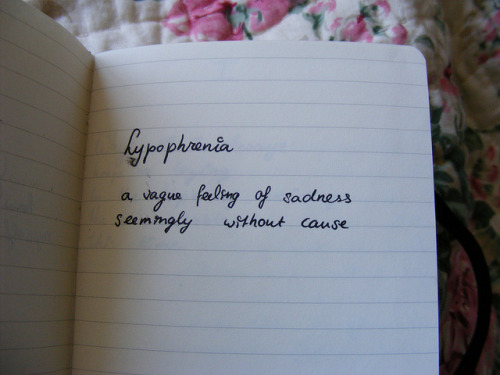 Lypophrenia
a vague feeling of sadness
seemingly without cause